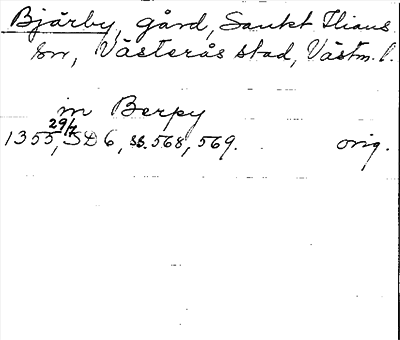 Bjärby, gård, Sankt Ilians
sn, Västerås stad, Västm. l.
in Berpy
29/7
1355, SD 6, ss. 568, 569. orig.